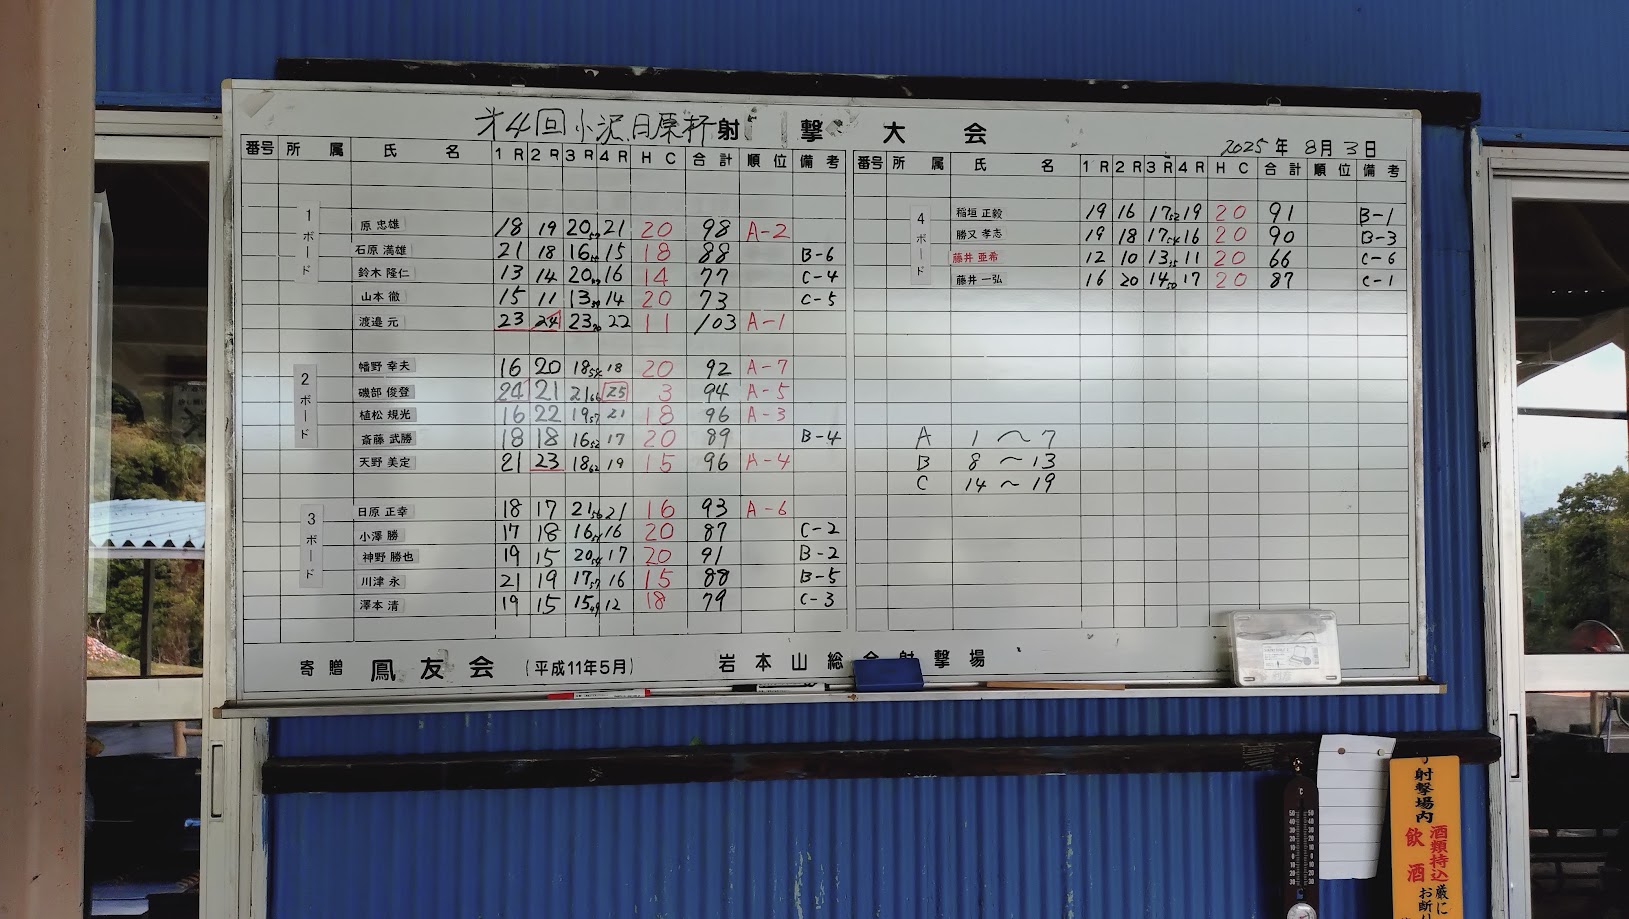 第4回小沢、日原杯射撃大会
2025年 8月 3日
番号 所属 氏名 1R 2R 3R 4R HC 合計 順位 備考
1ボード
原 忠雄 18 19 20 57 21 20 98 A-2
石原 満雄 21 18 16 15 18 88 B-6
鈴木 隆仁 13 14 20 16 14 77 C-4
山本 徹 15 11 13 39 14 20 73 C-5
渡邉 元 23 24 23 70 22 11 103 A-1
2ボード
幡野 幸夫 16 20 18 54 18 20 92 A-7
磯部 俊登 24 21 21 66 25 3 94 A-5
植松 規光 16 22 19 57 21 18 96 A-3
斎藤 武勝 18 18 16 52 17 20 89 B-4
天野 美定 21 23 18 62 19 15 96 A-4
3ボード
日原 正幸 18 17 21 56 21 16 93 A-6
小澤 勝 17 18 16 51 16 20 87 C-2
神野 勝也 19 15 20 54 17 20 91 B-2
川津 永 21 19 17 57 16 15 88 B-5
澤本 清 19 15 15 49 12 18 79 C-3
番号 所属 氏名 1R 2R 3R 4R HC 合計 順位 備考
4ボード
稲垣 正毅 19 16 17 52 19 20 91 B-1
勝又 孝志 19 18 17 54 16 20 90 B-3
藤井 亜希 12 10 13 35 11 20 66 C-6
藤井 一弘 16 20 14 50 17 20 87 C-1
A 1〜7
B 8〜13
C 14〜19
寄贈 鳳友会 (平成11年5月) 岩本山総合射撃場
射撃場内
酒類持込
飲酒
厳に
お断り